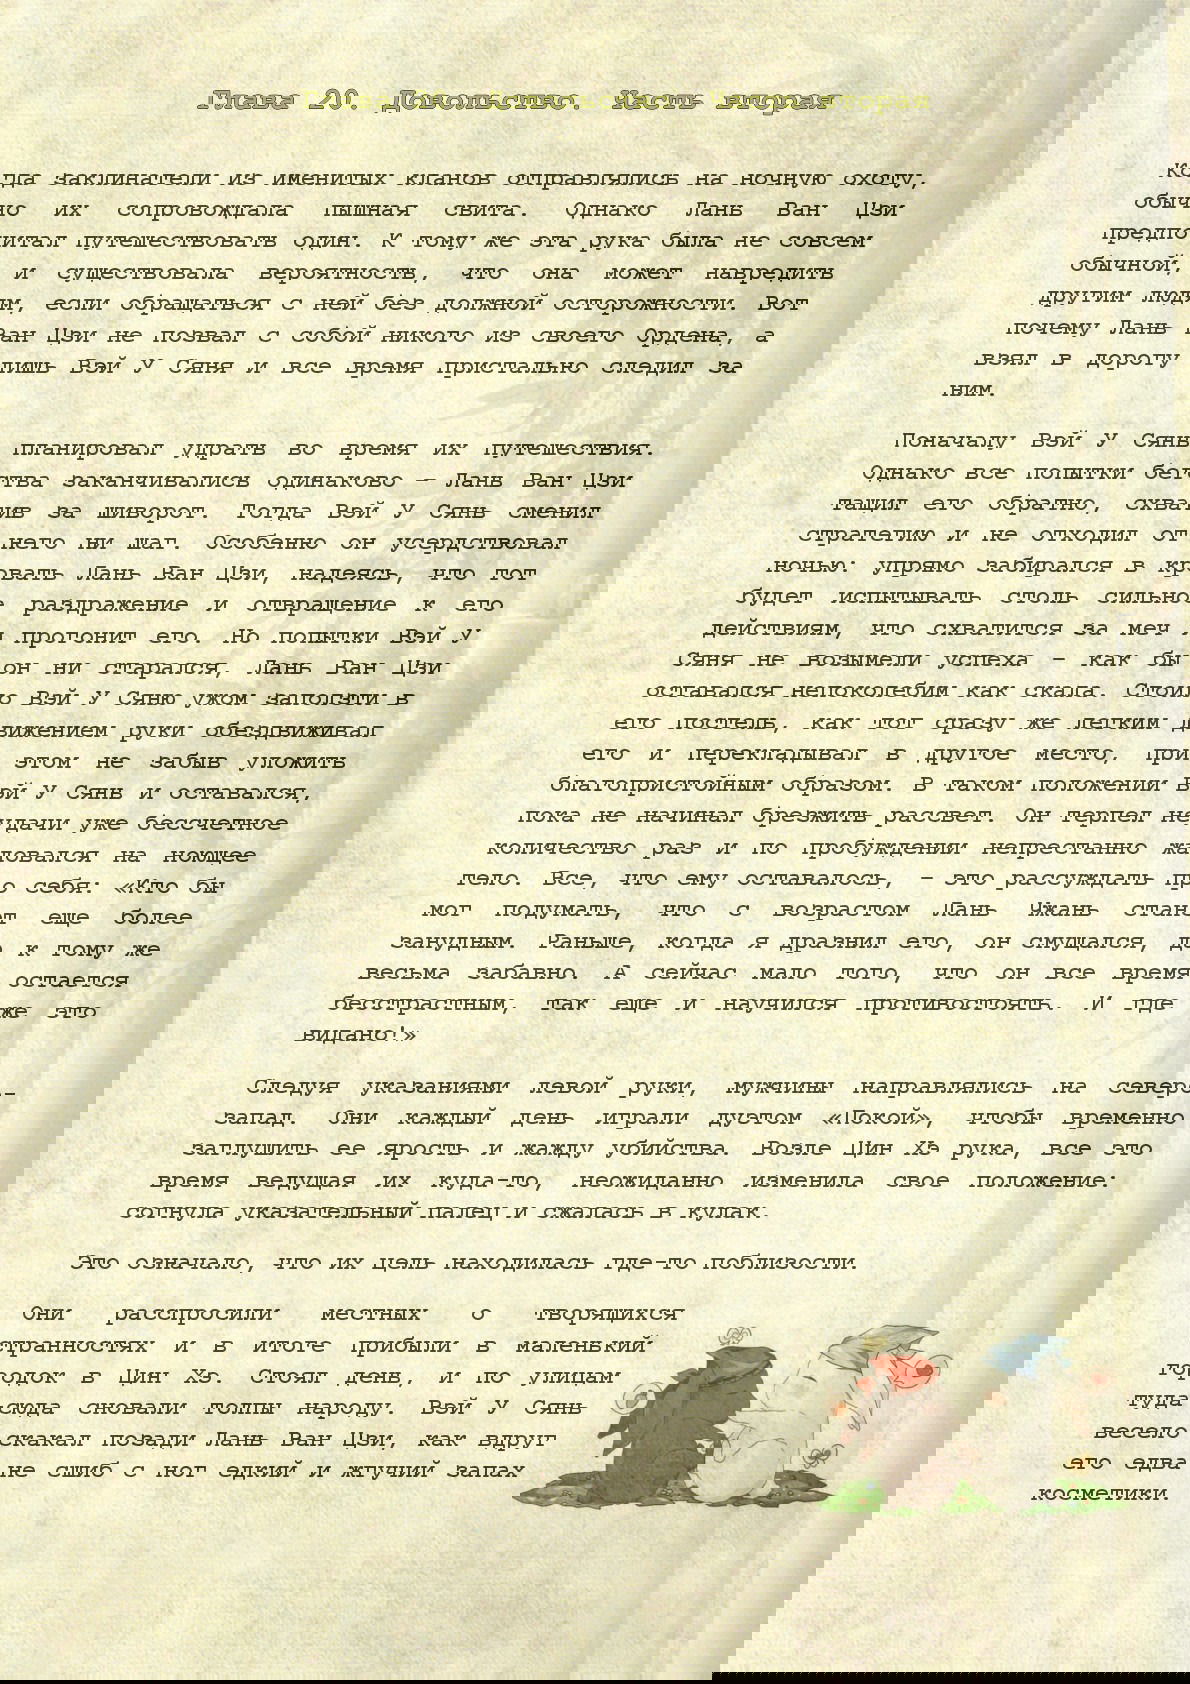 Глава 20. Довольство. Часть вторая
Когда заклинатели из именитых кланов отправлялись на ночную охоту,
обычно их сопровождала пышная свита. Однако Лань Ван Цзи
предпочитал путешествовать один. К тому же эта рука была не совсем
обычной, и существовала вероятность, что она может навредить
другим людям, если обращаться с ней без должной осторожности. Вот
почему Лань Ван Цзи не позвал с собой никого из своего Ордена, а
взял в дорогу лишь Вэй У Сяня и все время пристально следил за
ним.
Поначалу Вэй У Сянь планировал удрать во время их путешествия.
Однако все попытки бегства заканчивались одинаково – Лань Ван Цзи
тащил его обратно, схватив за шиворот. Тогда Вэй У Сянь сменил
стратегию и не отходил от него ни шаг. Особенно он усердствовал
ночью: упрямо забирался в кровать Лань Ван Цзи, надеясь, что тот
будет испытывать столь сильное раздражение и отвращение к его
действиям, что схватится за меч и прогонит его. Но попытки Вэй У
Сяня не возымели успеха – как бы он ни старался, Лань Ван Цзи
оставался непоколебим как скала. Стоило Вэй У Сяню ужом заползти в
его постель, как тот сразу же легким движением руки обездвиживал
его и перекладывал в другое место, при этом не забыв уложить
благопристойным образом. В таком положении Вэй У Сянь и оставался,
пока не начинал брезжить рассвет. Он терпел неудачи уже бессчетное
количество раз и по пробуждении непрестанно жаловался на ноющее
тело. Все, что ему оставалось, – это рассуждать про себя: «Кто бы
мог подумать, что с возрастом Лань Чжань станет еще более
занудным. Раньше, когда я дразнил его, он смущался, да к тому же
весьма забавно. А сейчас мало того, что он все время остается
бесстрастным, так еще и научился противостоять. И где же это
видано!»
Следуя указаниями левой руки, мужчины направлялись на северо-
запад. Они каждый день играли дуэтом «Покой», чтобы временно
заглушить ее ярость и жажду убийства. Возле Цин Хэ рука, все это
время ведущая их куда-то, неожиданно изменила свое положение:
согнула указательный палец и сжалась в кулак.
Это означало, что их цель находилась где-то поблизости.
Они расспросили местных о творящихся
странностях и в итоге прибыли в маленький
городок в Цин Хэ. Стоял день, и по улицам
туда-сюда сновали толпы народу. Вэй У Сянь
весело скакал позади Лань Ван Цзи, как вдруг
его едва не сшиб с ног едкий и жгучий запах
косметики.